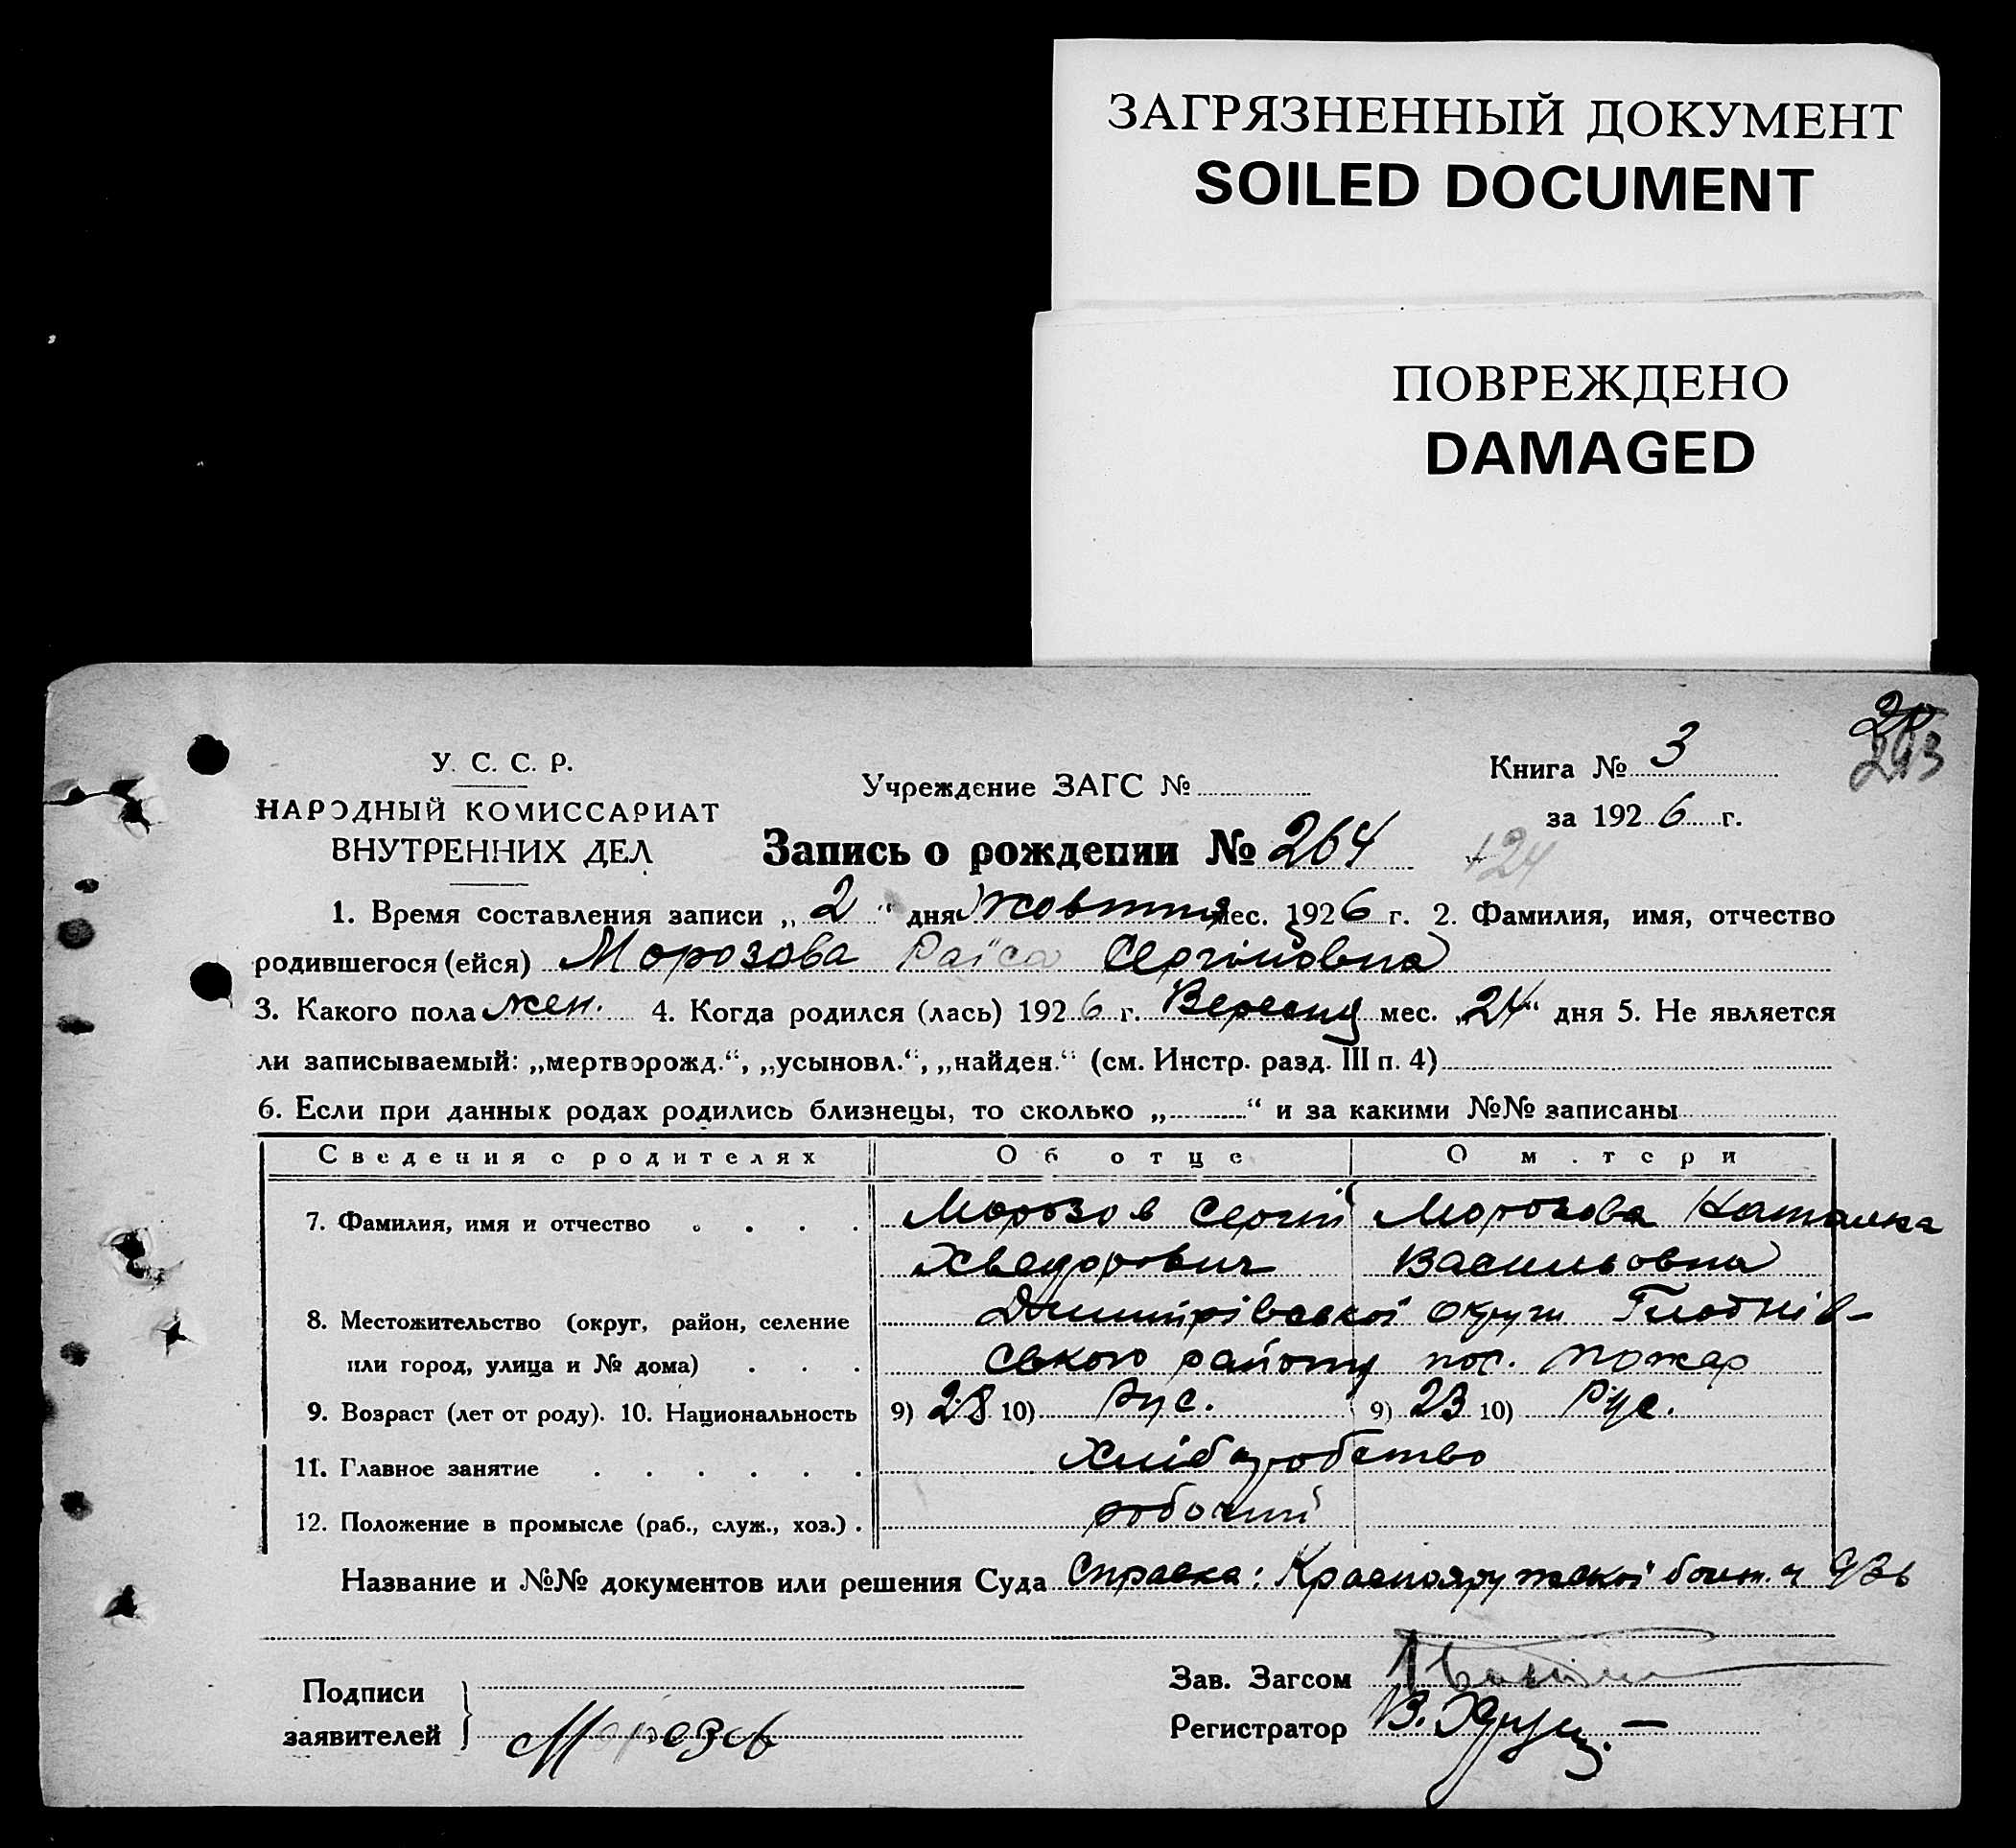 ЗАГРЯЗНЕННЫЙ ДОКУМЕНТ
SOILED DOCUMENT
ПОВРЕЖДЕНО
DAMAGED
293
У. С. С. Р.
НАРОДНЫЙ КОМИССАРИАТ
ВНУТРЕННИХ ДЕЛ
Учреждение ЗАГС №
Книга № 3
за 1926 г.
Запись о рождении № 264
124
1. Время составления записи „ 2 “ дня Жовтня мес. 1926 г. 2. Фамилия, имя, отчество
родившегося (ейся) Морозова Раїса Сергіивна
3. Какого пола жен. 4. Когда родился (лась) 1926 г. Вересню мес. „24“ дня 5. Не является
ли записываемый: „мертворожд.“, „усыновл.“, „найден.“ (см. Инстр. разд. III п. 4)
6. Если при данных родах родились близнецы, то сколько „ “ и за какими №№ записаны
Сведения о родителях Об отце О матери
7. Фамилия, имя и отчество . . . . Морозов Сергій Морозова Наталка
Хведорович Васильовна
8. Местожительство (округ, район, селение округи
или город, улица и № дома) . . . ського району пос. Пожар
9. Возраст (лет от роду). 10. Национальность 9) 28 10) Рус. 9) 23 10) Рус.
11. Главное занятие . . . . . . Хліборобство
12. Положение в промысле (раб., служ., хоз.) . робочий
Название и №№ документов или решения Суда Справка: Краснояружської
Подписи
заявителей Морозов
Зав. Загсом
Регистратор В.